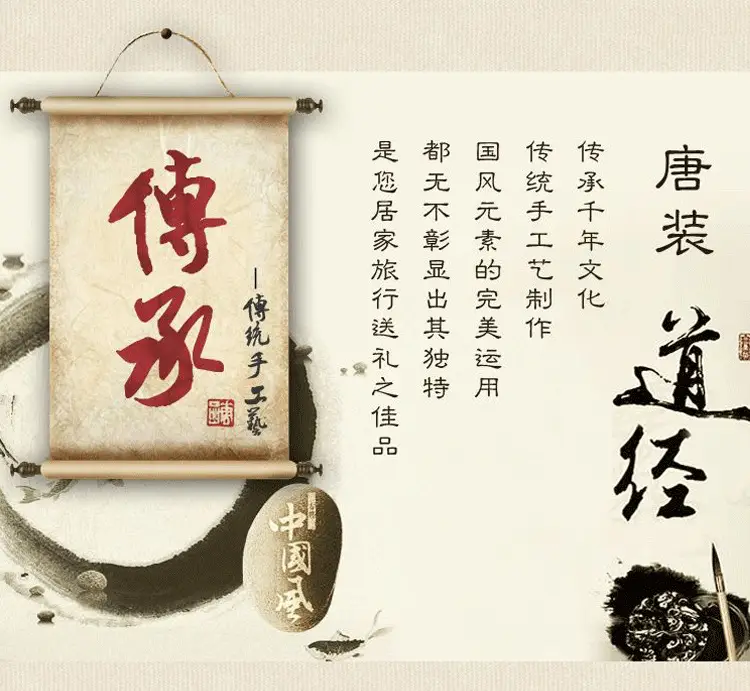 唐装
道经
传承千年文化
传统手工艺制作
国风元素的完美运用
都无不彰显出其独特
是您居家旅行送礼之佳品
傳承
—傳统手工藝
中國風